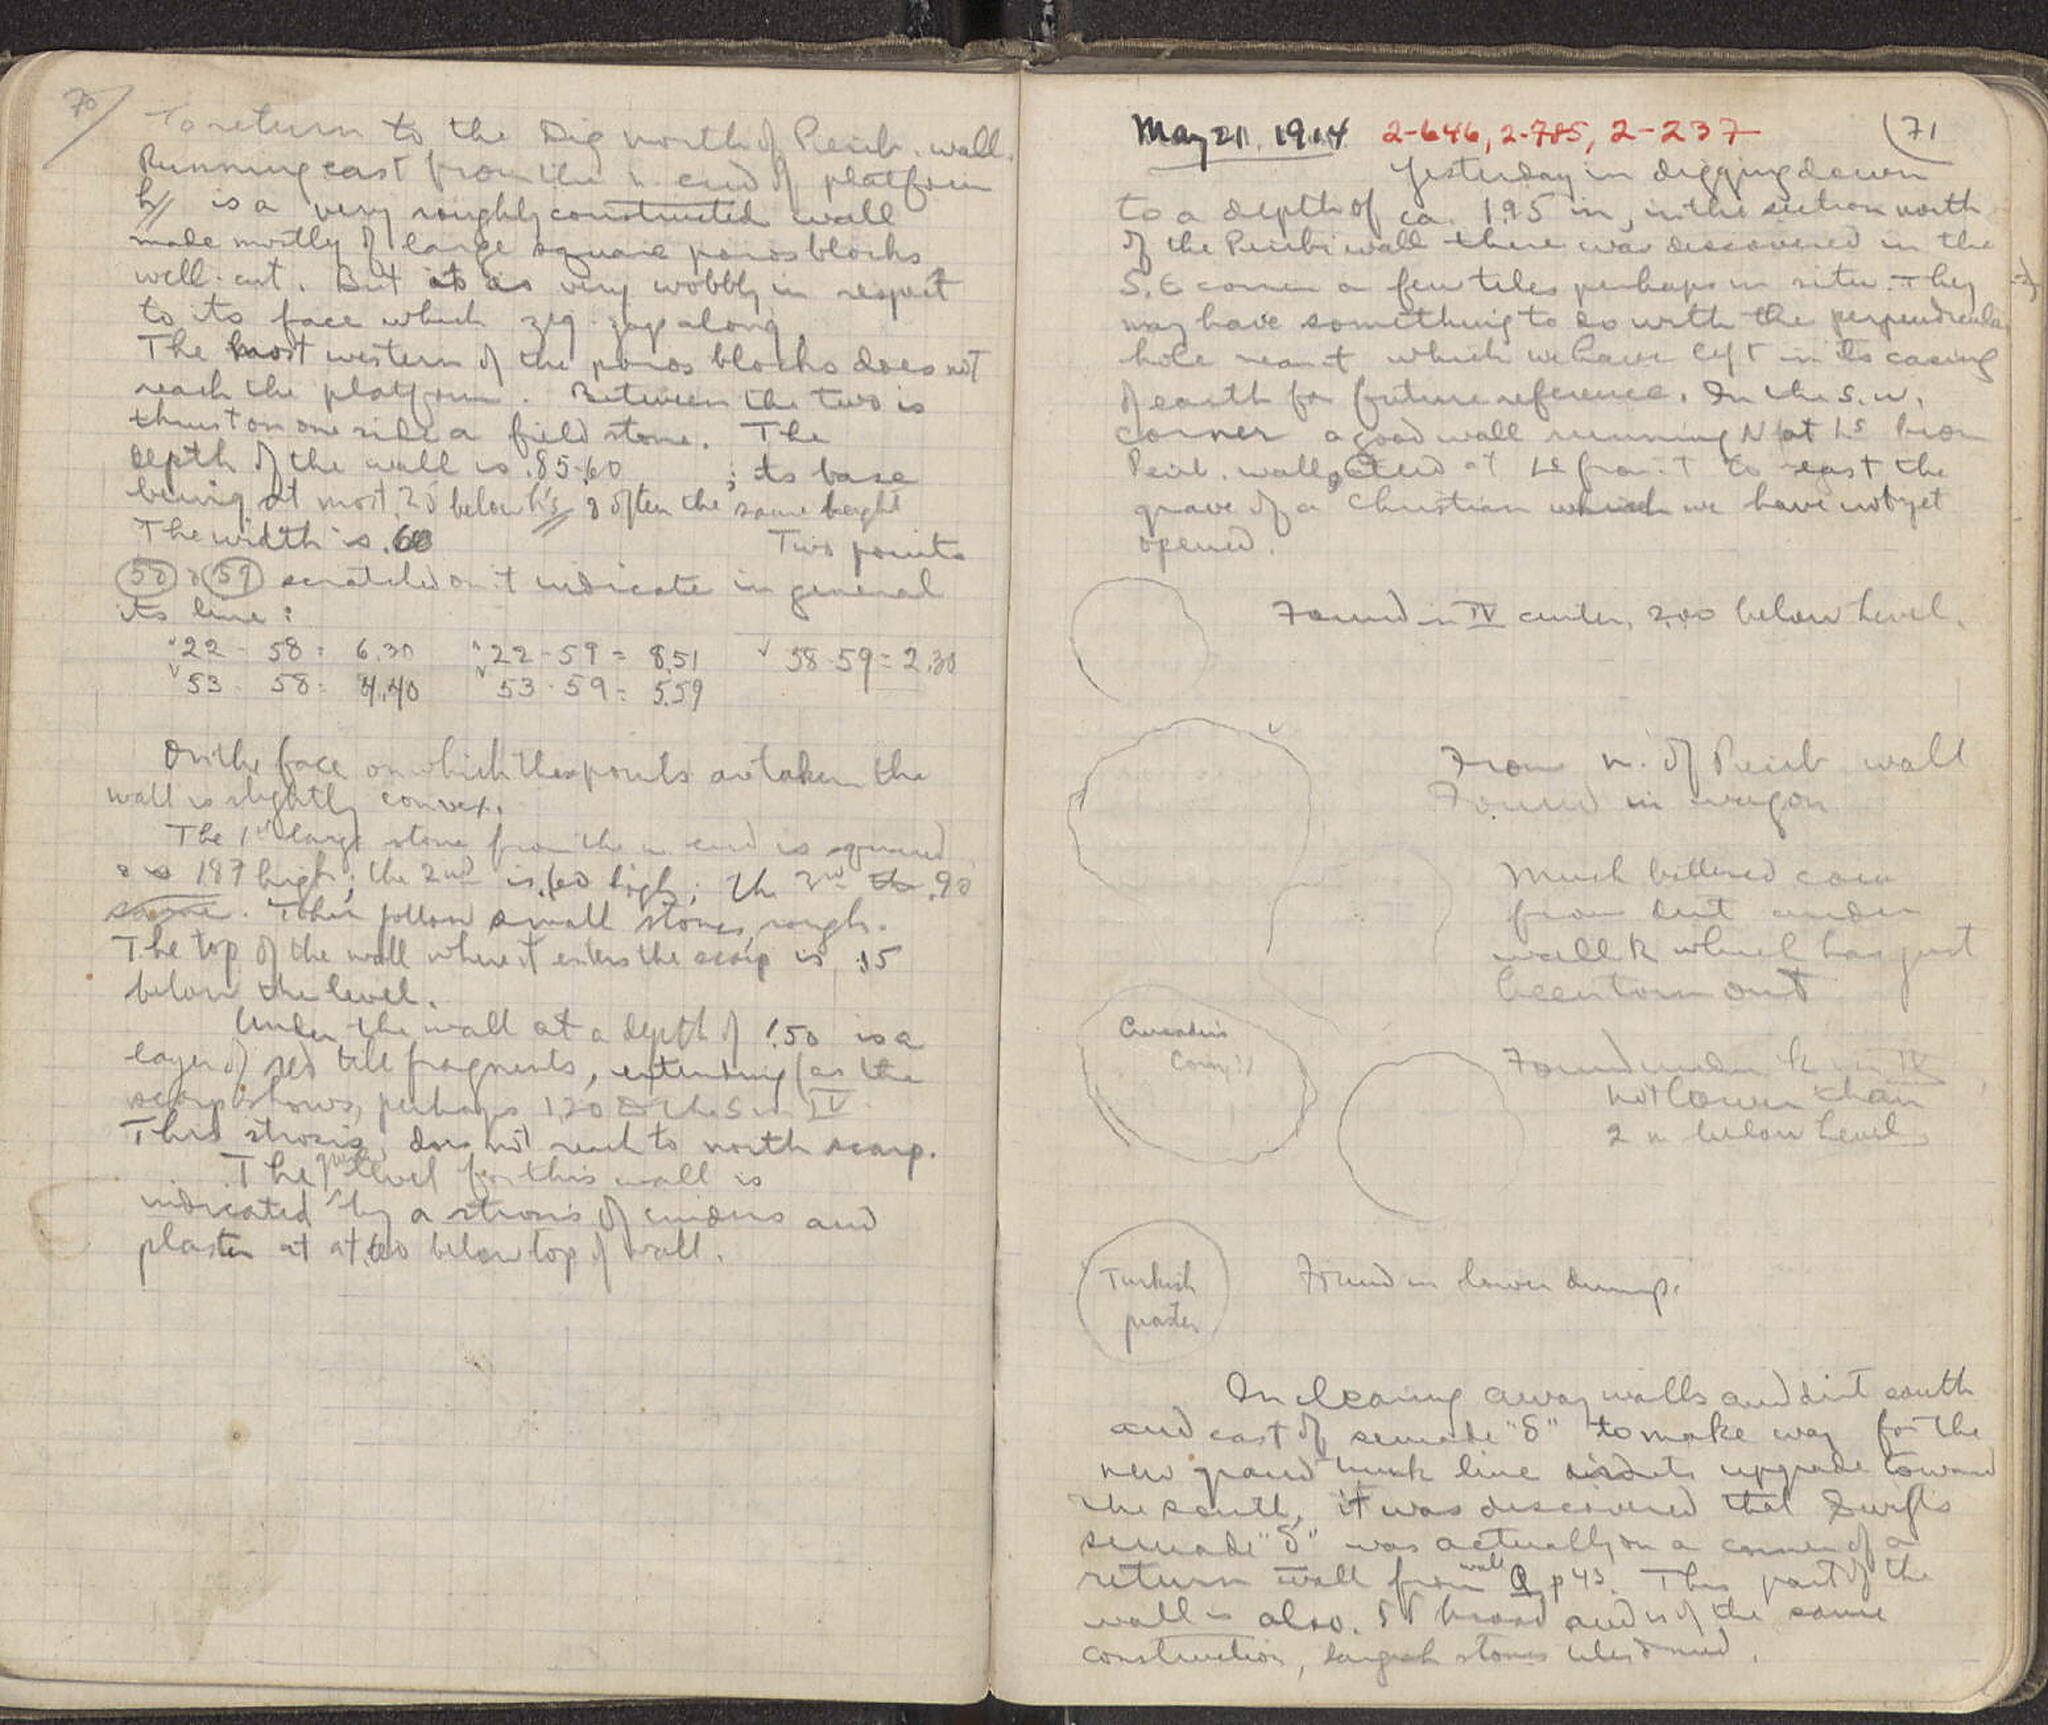 70
To return to the Dig north of Peirb. wall.
Running east from the n. end of platform
h is a very roughly constructed wall
made mostly of large square poros blocks
well-cut. But it is very wobbly in respect
to its face which zig-zags along.
The most western of the poros blocks does not
reach the platform. Between the two is
thrust on one side a field stone. The
depth of the wall is .85-.60 ; its base
being at most .25 below h's & often the same height
The width is .60 Two points
58 & 59 scratched on it indicate in general
its line:
22 - 58 = 6.30 22 - 59 = 8.51 58-59 = 2.30
53 - 58 = 4.40 53 - 59 = 5.59
On the face on which these points are taken the
wall is slightly convex.
The 1st large stone from the w. end is squared
& is 187 high; the 2nd is .60 high; the 3rd .90
Then follow small stones, rough.
The top of the wall where it enters the scarp is .15
below the level.
Under the wall at a depth of 1.50 is a
layer of red tile fragments, extending (as the
scarp shows, perhaps 1.20 to the S in IV.
This strosis does not reach to north scarp.
The ground level for this wall is
indicated by a strosis of cinders and
plaster at at .60 below top of wall.
May 21. 1914 2-646, 2-785, 2-237 71
Yesterday in digging down
to a depth of ca. 1.95 m, in the section north
of the Peirb. wall there was discovered in the
S.E corner a few tiles perhaps in situ. They
may have something to do with the perpendicular
hole near it which we have left in its casing
of earth for future reference. In the S.W.
corner a good wall running N at Ls from
Peirb. wall, and at Ls from it to east the
grave of a Christian which we have not yet
opened.
Found in IV center, 2.00 below level.
From n. of Peirb wall
Found in wagon
Much battered coin
from dirt under
wall k which has just
been torn out
Crusader's
Coin
Found under k in IV
not lower than
2 m below level
Turkish
piaster
Found in lower dump.
In clearing away walls and dirt south
and east of semade "δ" to make way for the
new grand trunk line and its upgrade toward
the south, it was discovered that Swift's
semade "δ" was actually on a corner of a
return wall from wall Q, p 43. This part of the
wall is also .55 broad and is of the same
construction, largish stones tiles & mud.